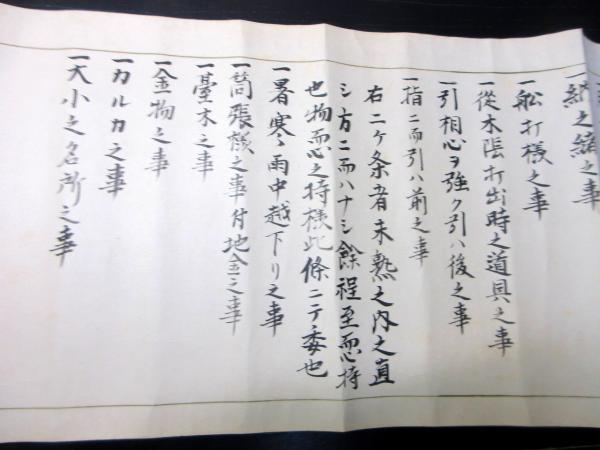 一舩打様之事
一從木陰打出時之道具之事
一引相心ヲ強ク引ハ後之事
一指ニ而引ハ前之事
右二ケ条者未熟之内之直
シ方ニ而ハナシ餘程至而心持
也物而心之持様此條ニテ委也
一暑寒雨中越下リ之事
一筒張様之事付地金之事
一臺木之事
一金物之事
一カルカ之事
一大小之名所之事